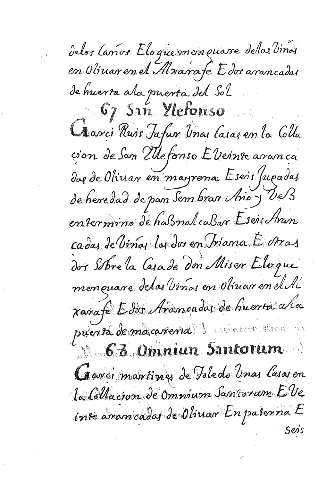 de los Caños E lo que menguare de las Viñas
en Olivar en el Alxarafe E dos arancadas
de huerta a la puerta del Sol
67 San Ylefonso
Garci Ruis Tafur Unas Casas en la Colla
çion de San Yllefonso E Veinte aranca
das de Olivar en mayrena E seis Jugadas
de heredad de pan Sembrar Año y VeZ
en termino de haBnalcaBar E seis Aran
cadas de Viñas las dos en Triana E otras
dos Sobre la Casa de don Miser E lo que
menguare de las Viñas en Olivar en el Al
xarafe E dos Arancadas de huerta a la
puerta de macarena
68 Omniun Santorum
Garci martines de Toledo Unas Casas en
la Collacion de Omnium Santorum E Ve
inte arancadas de Olivar En paterna E
seis